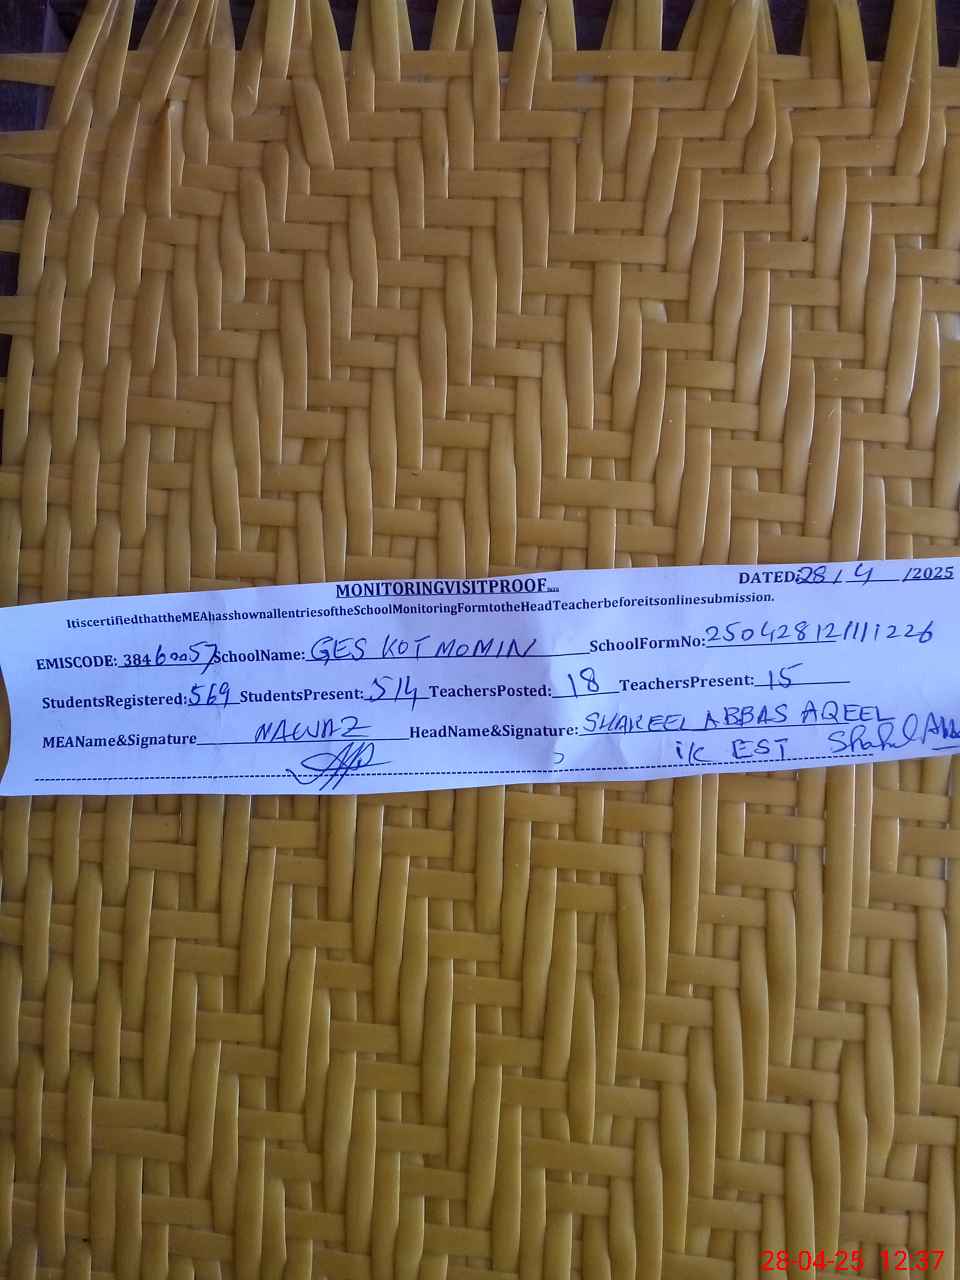 MONITORINGVISITPROOF
DATED:28/4/2025
ItiscertifiedthattheMEAhasshownallentriesoftheSchoolMonitoringFormtotheHeadTeacherbeforeitsonlinesubmission.
EMISCODE: 38460057 SchoolName: GES KOT MOMIN SchoolFormNo:
StudentsRegistered: 569 StudentsPresent: 514 TeachersPosted: 18 TeachersPresent: 15
MEAName&Signature NAWAZ HeadName&Signature: SHAKEEL ABBAS AQEEL
i/c EST
28-04-25 12:37